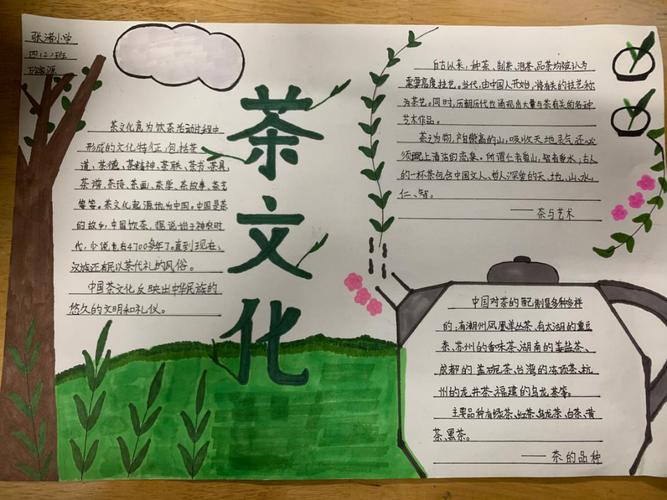 张浦小学
四(2)班
茶文化
茶文化意为饮茶活动过程中
形成的文化特征,包括茶
道、茶德、茶精神、茶联、茶书、茶具、
茶谱、茶诗、茶画、茶学、茶故事、茶艺
等等。茶文化起源地为中国。中国是茶
的故乡,中国饮茶,据说始于神农时
代,少说也有4700多年了。直到现在,
汉族还有民以茶代礼的风俗。
中国茶文化反映出中华民族的
悠久的文明和礼仪。
自古以来,种茶、制茶、泡茶、品茶均被认为
需要高度技艺。当代,由中国人开始,将有关的技艺称
为茶艺。同时,历朝历代也涌现出大量与茶有关的各种
艺术作品。
茶之为物,产自傲高的山,吸收天地灵气,还必
须配上清洁的流泉,所谓仁者爱山,智者爱水,古人
的一杯茶包含中国文人、哲人深爱的天、地、山、水、
仁、智。
——茶与艺术
中国对茶的配制是多种多样
的:有潮州凤凰单丛茶、有太湖的熏豆
茶、苏州的香味茶、湖南的姜盐茶、
成都的盖碗茶、台湾的冻顶茶、杭
州的龙井茶、福建的乌龙茶等。
主要品种有绿茶、红茶、乌龙茶、白茶、黄
茶、黑茶。
——茶的品种